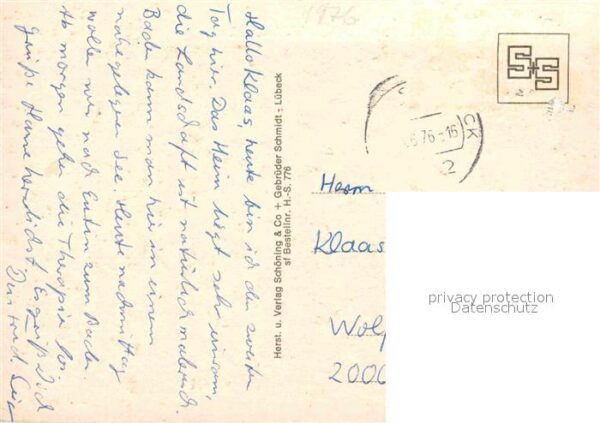 1976
Hallo Klaas, heute bin ich den zweiten
Tag hier. Das Heim liegt sehr einsam,
die Landschaft ist natürlich
Baden kann man hier in einem
nahegelegen See. Heute nachmittag
wollen wir nach Eutin zum Baden
Ab morgen gehen die Therapie los.
Grüße Hanne herzlichst Es grüßt Dich
Herst. u. Verlag Schöning & Co + Gebrüder Schmidt - Lübeck
sf Bestellnr. H.-S. 776
S+S
.6.76-16
CK
2
Herrn
Klaas
Wolf
2000
privacy protection
Datenschutz